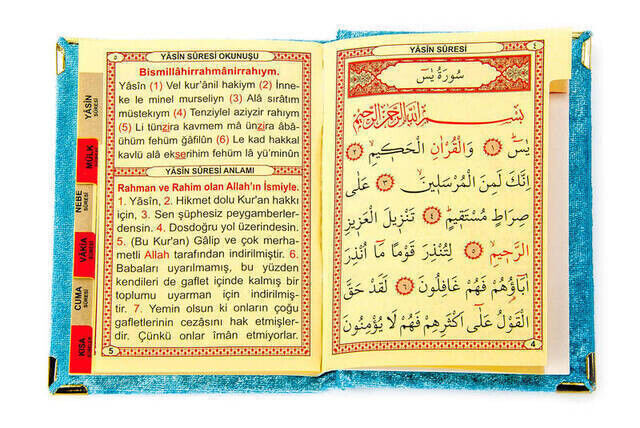 ٥
YÂSÎN SÛRESİ OKUNUŞU
Bismillâhirrahmânirrahıym.
Yâsîn (1) Vel kur'ânil hakiym (2) İnne-
ke le minel murseliyn (3) Alâ sırâtım
müstekıym (4) Tenziylel aziyzir rahıym
(5) Li tünzira kavmem mâ ünzira âbâ-
ühüm fehüm gâfilûn (6) Le kad hakkal
kavlü alâ ekserihim fehüm lâ yü'minûn
YÂSÎN SÛRESİ ANLAMI
Rahman ve Rahim olan Allah'ın İsmiyle.
1. Yâsîn, 2. Hikmet dolu Kur'an hakkı
için, 3. Sen şüphesiz peygamberler-
densin. 4. Dosdoğru yol üzerindesin.
5. (Bu Kur'an) Gâlip ve çok merha-
metli Allah tarafından indirilmiştir. 6.
Babaları uyarılmamış, bu yüzden
kendileri de gaflet içinde kalmış bir
toplumu uyarman için indirilmiş-
tir. 7. Yemin olsun ki onların çoğu
gafletlerinin cezasını hak etmişler-
dir. Çünkü onlar îmân etmiyorlar.
5
YÂSÎN
SÛRESİ
MÜLK
SÛRESİ
NEBE
SÛRESİ
VÂKIA
SÛRESİ
CUMA
SÛRESİ
KISA
SÛRELER
YÂSÎN SÛRESİ
٤
سُورَةُ يٰسٓ
بِسْمِ اللّٰهِ الرَّحْمٰنِ الرَّحِيمِ
يٰسٓ ﴿١﴾ وَالْقُرْاٰنِ الْحَكِيمِ ﴿٢﴾
اِنَّكَ لَمِنَ الْمُرْسَلِينَ ﴿٣﴾ عَلٰى
صِرَاطٍ مُسْتَقِيمٍ ﴿٤﴾ تَنْزِيلَ الْعَزِيزِ
الرَّحِيمِ ﴿٥﴾ لِتُنْذِرَ قَوْمًا مَٓا اُنْذِرَ
اٰبَٓاؤُهُمْ فَهُمْ غَافِلُونَ ﴿٦﴾ لَقَدْ حَقَّ
الْقَوْلُ عَلٰٓى اَكْثَرِهِمْ فَهُمْ لَا يُؤْمِنُونَ
4